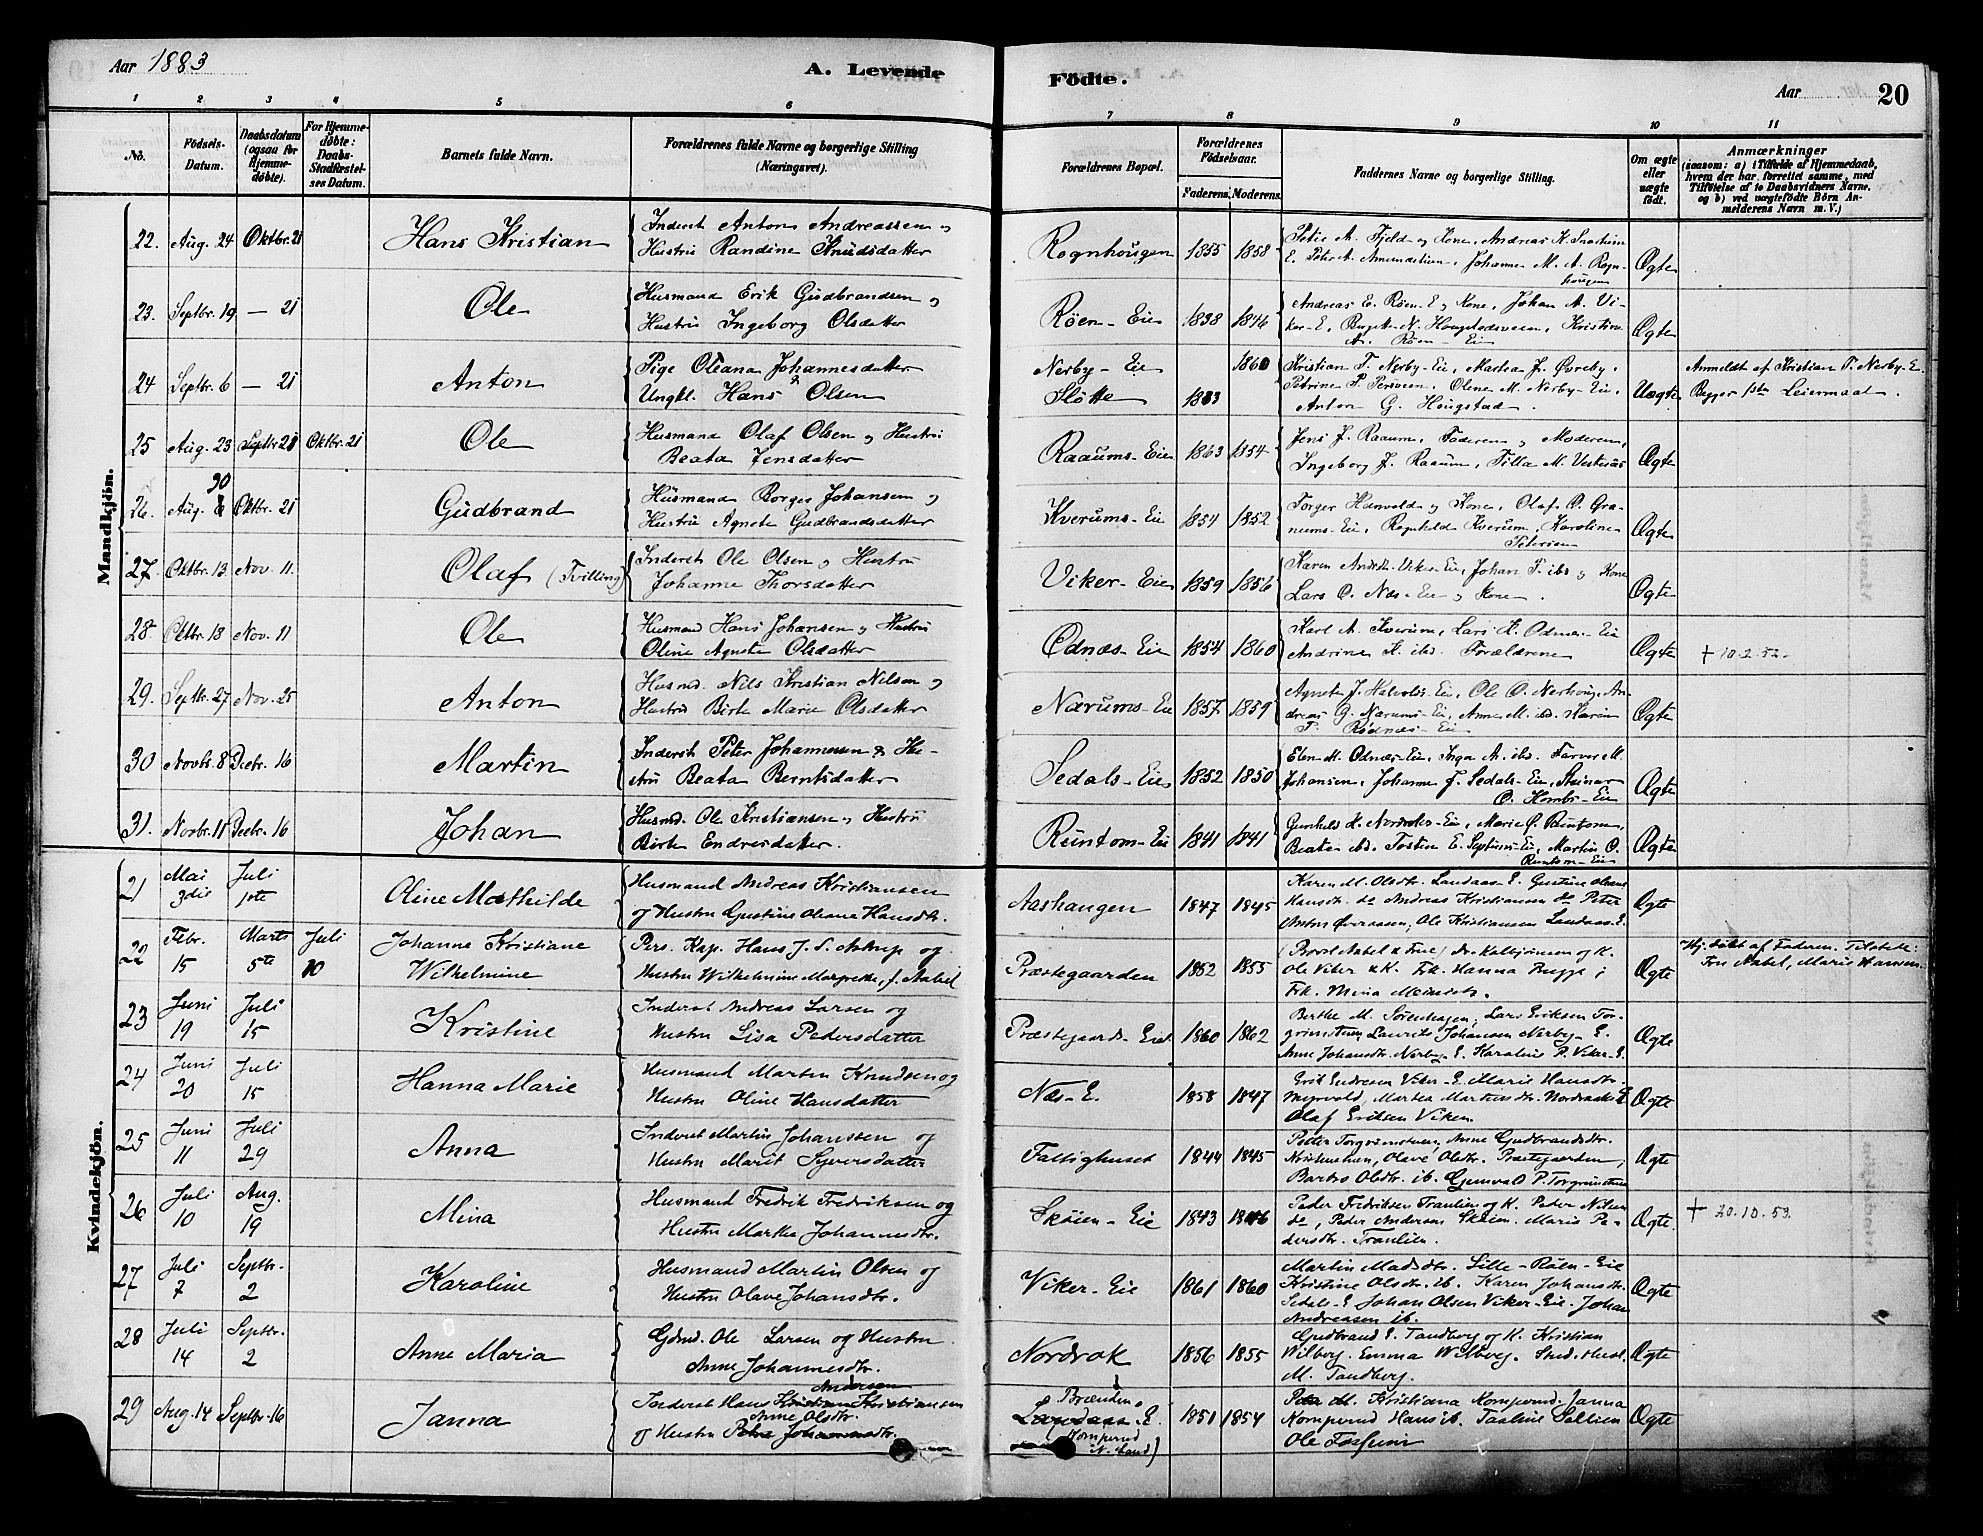 Aar 1883
A. Levende Födte.
Aar
20
1 2 3 4 5 6 7 8 9 10 11
No.
Födsels-Datum.
Daabsdatum (ogsaa for Hjemme-döbte).
For Hjemme-döbte: Daabs-Stadfæstel-ses Datum.
Barnets fulde Navn.
Forældrenes fulde Navne og borgerlige Stilling (Næringsvei).
Forældrenes Bopæl.
Forældrenes Födselsaar.
Faderens. Moderens.
Faddernes Navne og borgerlige Stilling.
Om ægte eller uægte födt.
Anmærkninger
(saasom: a) i Tilfælde af Hjemmedaab,
hvem der har forrettet samme, med
Tilföielse af to Daabsvidners Navne,
og b) ved uægtefödte Börn An-
melderens Navn m. V.)
Mandkjön.
22. Aug. 24 Oktbr. 21 Hans Kristian Inderst Anton Andreassen og
Hustru Randine Knudsdatter
Rognhougen 1855 1858 Peter A. Fjeld og Kone, Andreas K.
E. Peter A. Amundstuen, Johanne M. A. Rogn-
hougen Ægte
23. Septbr. 19 — 21 Ole Husmand Erik Gudbrandsen og
Hustru Ingeborg Olsdatter
Röen-Eie 1838 1846 Andreas E. Röen-E og Kone, Johan M. Vi-
ker-E, Birgitte N. Hougstadsveen, Kristine
A. Röen Eie Ægte
24 Septbr. 6 — 21 Anton Pige Oleana Johannesdatter
Ungkl. Hans Olsen
Nerby-Eie 1860
Slötte
Kristian T. Nerby-Eie, Martea J. Övreby,
Petrine P. Persveen, Olene M. Nerby-Eie,
Anton G. Hougstad. Uægte
Anmeldt af Kristian T. Nerby-E.
Begges 1ste Leiermaal.
25 Aug. 23 Septbr 21 Oktbr. 21 Ole Husmand Olaf Olsen og Hustru
Beata Jensdatter
Raaums-Eie 1863 1854 Jens J. Raaum, Faderen og Moderen,
Ingeborg J. Raaum, Tilla M. Vestesås Ægte
26. Aug. 30 Oktbr. 21 Gudbrand Husmand Borger Johansen og
Hustru Agnete Gudbrandsdatter
Kverums-Eie 1854 1852 Torger Hanvold og Kone, Olaf O. Gra-
nums-Eie, Ragnhilda Kverum, Karoline
Petersen Ægte
27. Oktbr. 13 Nov. 11. Olaf (Tvilling) Inderst Ole Olsen og Hustru
Johanne Thorsdatter
Viker-Eie 1859 1856 Karen Andrdt. Viker-Eie, Johan T. ibd og Kone
Lars O. Næs-Eie og Kone. Ægte
28. Oktbr. 18 Nov. 11 Ole Husmand Hans Johansen og Hustru
Oline Agnete Olsdatter
Odnæs-Eie 1854 1860 Karl A. Kverum, Lars K. Odnæs-Eie
Andrine K. ibd. Forældrene Ægte † 10.2.52.
29. Septbr. 27 Nov. 25 Anton Husmd. Nils Kristian Nilsen og
Hustru Birte Marie Olsdatter
Nærums-Eie 1857 1859 Agnete J. Halvols-Eie, Ole O. Nerhoug, An-
dreas G. Nærums-Eie, Anne M. ibd. Karen
T. Rödnæs-Eie Ægte
30 Novbr. 8 Decbr. 16 Martin Inderst Peter Johannessen & Hu-
stru Beata Berntsdatter
Sedals-Eie 1852 1850 Elen M. Odnæs-Eie, Inga A. ibd. Farver M.
Johansen, Johanne J. Sedals-Eie, Steinar
O. Hornbr-Eie Ægte
31. Novbr. 11 Decbr. 16 Johan Husmd. Ole Kristiansen og Hustru
Birte Endresdatter.
Runtom-Eie 1841 1841 Gunhild H. Nordraks-Eie, Marie O. Runtom,
Beate ibd. Tosten E. Septums-Eie, Martin O.
Runtom-Eie Ægte
Kvindekjön.
21 Mai 3die Juli 1ste Oline Mathilde Husmand Andreas Kristiansen
og Hustru Gustine Oleane Hansdtr.
Aashaugen 1847 1845 Karen M. Olsdtr. Landaas-E. Gustine Oleane
Hansdtr. de Andreas Kristiansen de Peter
Anton Iversen, Ole Kristiansen Landaas-E. Ægte
22 Febr. 15 Marts 5te Juli 10 Johanne Kristiane
Wilhelmine
Pers. Kap. Hans J. S. Astrup og
Hustru Wilhelmine Margrethe, f. Aabel
Præstegaarden 1852 1855 (Provst Aabel & Frue) Dr. Kolbjörnsen og K.
Ole Viker & K. Frk. Hanna Rygge;
Frk. Mina Meinich. Ægte
Hj. döbt af Faderen. Tilstede:
Fru Aabel, Marie Hansen.
23 Juni 19 Juli 15 Kristine Inderst Andreas Larsen og
Hustru Lisa Pedersdatter
Præstegaards Eiet 1860 1862 Berthe M. Sörenhagen, Lars Eriksen Tor-
grimstuen, Laurits Johansen Nerby-E.
Anne Johansdtr. Nerby-E. Karolius P. Viker-E. Ægte
24 Juni 20 Juli 15 Hanna Marie Husmand Martin Knudsen og
Hustru Oline Hansdatter
Næs-E. 1858 1847 Erik Endresen Viker-E. Marie Hansdtr.
Myrvold, Martea Martinsdtr. Nordraks E
Olaf Eriksen Viken. Ægte
25 Juni 11 Juli 29 Anna Inderst Martin Johanssen og
Hustru Marit Syversdatter
Fattighuset 1844 1845 Peder Torgrimstuen, Anne Gudbrandsdtr.
Kristinstuen, Olave Olsdtr. Præstegaarden,
Bertes Olsdtr. ib. Gjenvald P. Torgrimstuen Ægte
26 Juli 10 Aug. 19 Mina Husmand Fredrik Fredriksen og
Hustru Marthe Johannesdtr.
Sköien-Eie 1843 1846 Peder Fredriksen Tranlien og K. Peder Nilsen
de, Peder Andersen Sköien. Marie Pe-
dersdtr. Tranlien. Ægte † 20.10.53.
27 Juli 7 Septbr. 2 Karoline Husmand Martin Olsen og
Hustru Olave Johansdtr.
Viker-Eie 1861 1860 Martin Madsdtr. Lille-Röen-Eie
Kristine Olsdtr. ib. Karen Johansdtr.
Sedals-E Johan Olsen Viker-Eie. Johan
Andreasen ib. Ægte
28 Juli 14 Septbr. 2 Anne Maria Gdmd. Ole Larsen og Hustru
Anne Johannesdtr.
Nordrak 1856 1855 Gudbrand E. Tandberg og K. Kristian
Wilberg. Emma Wilberg. Stud. theol.
M. Tandberg. Ægte
29 Aug. 14 Septbr. 16 Janna Inderst Hans Kristian Kristiansen
Andersen
Anne Olsdtr.
og Hustru Petra Johannesdtr.
Brænden,
Landaas-E.
(Komperud
N. Land)
1851 1854 Peter M. Kristiana Kompervd. Janna
Komperud Hans ib. Tarline Sollien
Ole Fossum Ægte